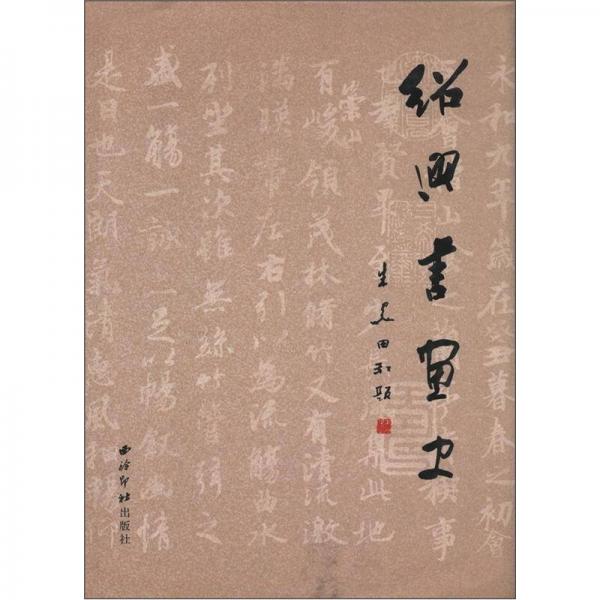 紹興書畫史
朱关田題
永和九年歲在癸丑暮春之初會
于會稽山陰之蘭亭脩稧事
也群賢畢至少長咸集此地
崇山
有峻領茂林脩竹又有清流激
湍暎帶左右引以為流觴曲水
列坐其次雖無絲竹管弦之
盛一觴一詠亦足以暢敘幽情
是日也天朗氣清惠風和暢
西泠印社出版社